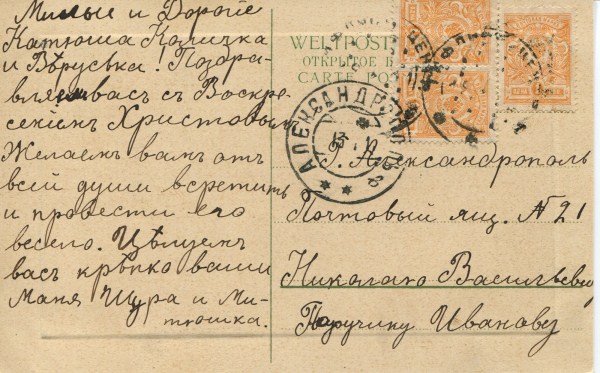 Милые и Дорогие
Катюша Колизка
и Вѣруська! Поздра-
вляем васъ съ Воскре-
сеніемъ Христовымъ
Желаемъ вамъ отъ
всей души встретить
и провести его
весело. Цѣлуемъ
васъ крѣпко ваши
Маня Шура и Ми-
тюшка.
WELTPOST
ОТКРЫТОЕ П
CARTE PO
АЛЕКСАНДРОПОЛЬ
г. Александрополь
Почтовый ящ. N 21
Николаю Васильевичу
Поручику Иванову